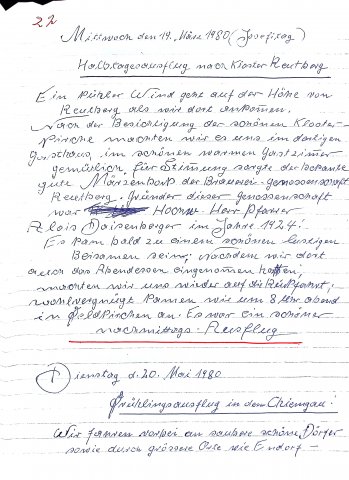 22
Mittwoch den 19. März 1980 (Josefitag)
Halbtagesausflug nach Kloster Reutberg
Ein kühler Wind geht auf der Höhe von
Reutberg als wir dort ankomen.
Nach der Besichtigung der schönen Kloster-
Kirche machten wir es uns im dortigen
Gasthaus, im schönen warmen Gastzimer
gemütlich für Stimung sorgte der bekante
gute Märzenbock der Brauerei-genossenschaft
Reutberg. Gründer dieser Genossenschaft
war Hochw. Herr Pfarrer
Alois Daisenberger im Jahre 1924.
Es kam bald zu einem schönen lustigen
Beisamen sein; nachdem wir dort
auch das Abendessen eingenomen hatten,
machten wir uns wieder auf die Rückfahrt,
wohlvergnügt kamen wir um 8 Uhr abend
in Feldkirchen an. Es war ein schöner
nachmittags-Ausflug
Dienstag d. 20. Mai 1980
Frühlingsausflug in den Chiemgau!
Wir fahren vorbei an saubere schöne Dörfer
sowie durch grössere Orte wie Endorf-